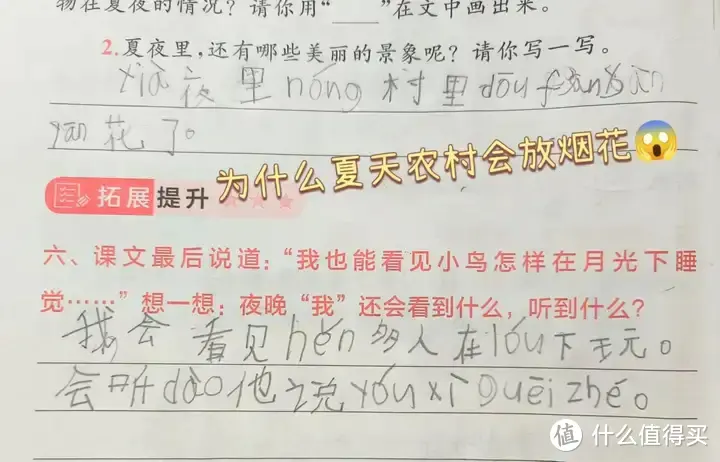 物在夏夜的情况？请你用“____”在文中画出来。
2.夏夜里，还有哪些美丽的景象呢？请你写一写。
xià夜里nóng村里dōu fàng
yān花了。
为什么夏天农村会放烟花
拓展提升
六、课文最后说道：“我也能看见小鸟怎样在月光下睡
觉……”想一想：夜晚“我”还会看到什么，听到什么？
我会看见hěn多人在lóu下王元。
会听dào他说yóuxì guēi zhé。
值 什么值得买